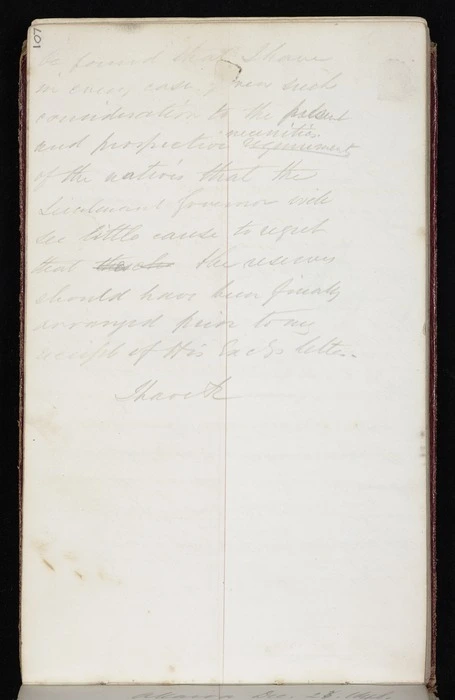 107
be found that I have
in every case given such
consideration to the present
necessities
and prospective requirement
of the natives that the
Lieutenant Governor will
see little cause to regret
that the reserves
should have been finally
arranged prior to my
receipt of His Excys letter.
I have &c